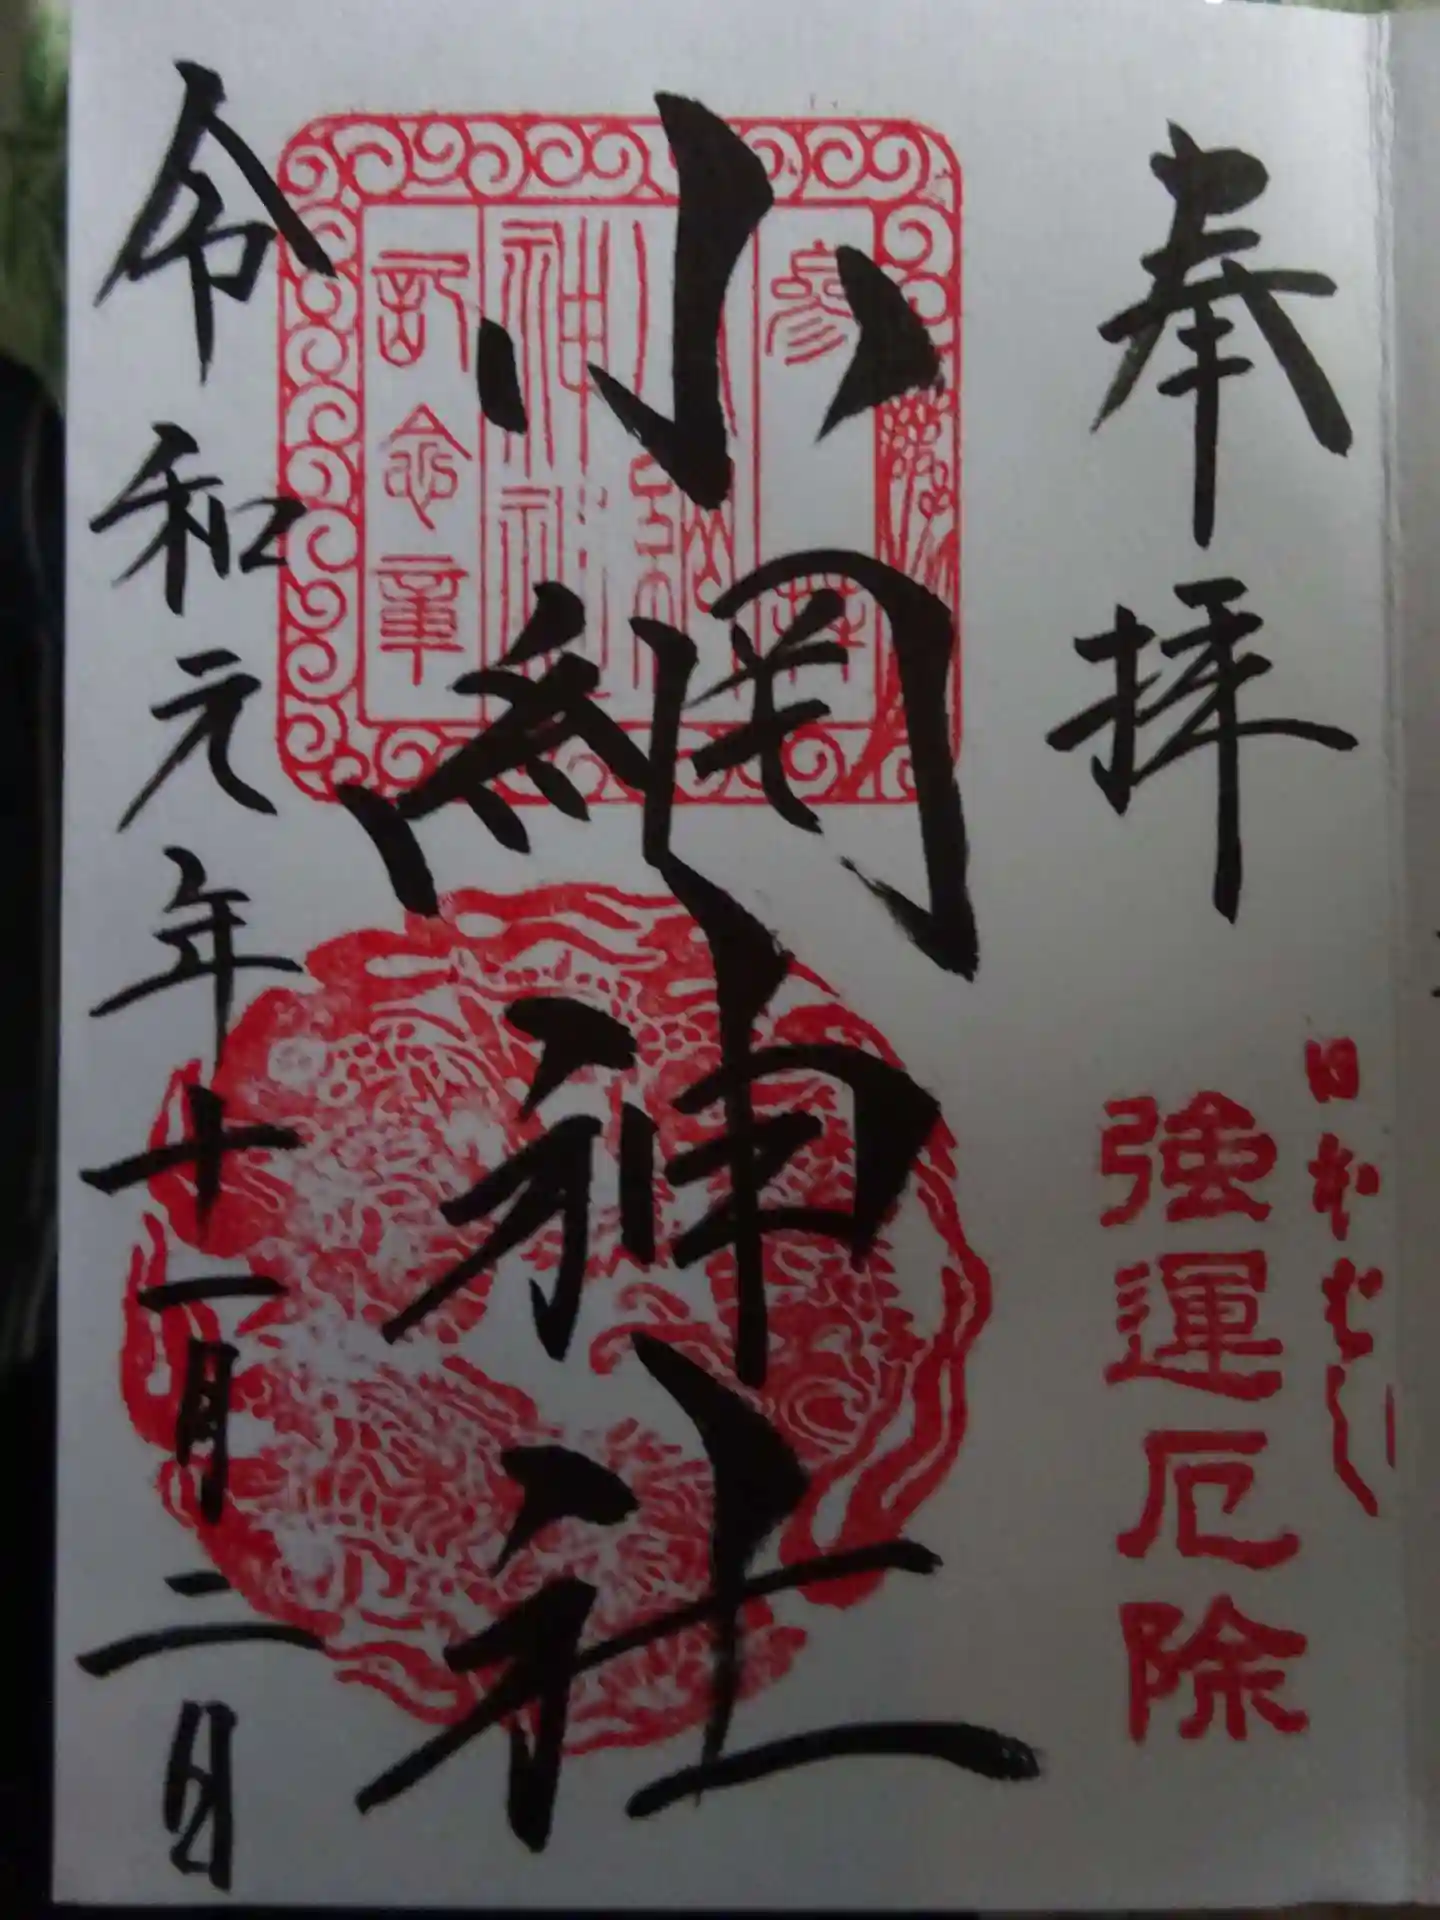 奉拝
日本ばし
強運厄除
小網神社
参拝
小網
神社
記念章
令和元年十一月二日